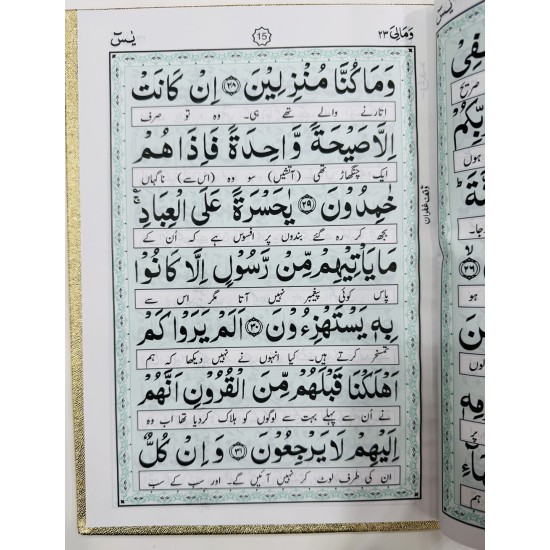 وَمَالِیَ ۲۳
15
یٰسٓ
وَمَا كُنَّا مُنْزِلِيْنَ ﴿۲۸﴾ اِنْ كَانَتْ
اتارنے والے تھے ہی۔ وہ تو صرف
اِلَّا صَيْحَةً وَّاحِدَةً فَاِذَا هُمْ
ایک چنگھاڑ تھی (آتشیں) سو وہ (اس سے) ناگہاں
خٰمِدُوْنَ ﴿۲۹﴾ يٰحَسْرَةً عَلَى الْعِبَادِ ۚ
بجھ کر رہ گئے بندوں پر افسوس ہے کہ اُن کے
مَا يَاْتِيْهِمْ مِّنْ رَّسُوْلٍ اِلَّا كَانُوْا
پاس کوئی پیغمبر نہیں آتا مگر اس سے
بِهٖ يَسْتَهْزِءُوْنَ ﴿۳۰﴾ اَلَمْ يَرَوْا كَمْ
تمسخر کرتے ہیں۔ کیا انہوں نے نہیں دیکھا کہ ہم
اَهْلَكْنَا قَبْلَهُمْ مِّنَ الْقُرُوْنِ اَنَّهُمْ
نے اُن سے پہلے بہت سے لوگوں کو ہلاک کردیا تھا اب وہ
اِلَيْهِمْ لَا يَرْجِعُوْنَ ﴿۳۱﴾ وَاِنْ كُلٌّ
ان کی طرف لوٹ کر نہیں آئیں گے۔ اور سب کے سب
وقف غفران